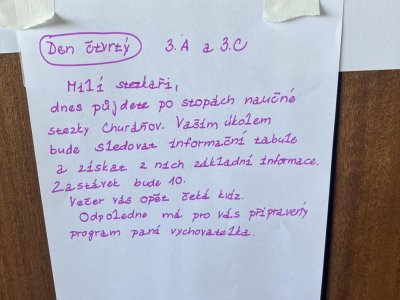 Den čtvrtý 3.A a 3.C
Milí stezkaři,
dnes půjdete po stopách naučné
stezky Churáňov. Vašim úkolem
bude sledovat informační tabule
a získat z nich základní informace.
Zastávek bude 10.
Večer vás opět čeká kvíz.
Odpoledne má pro vás připravený
program paní vychovatelka.